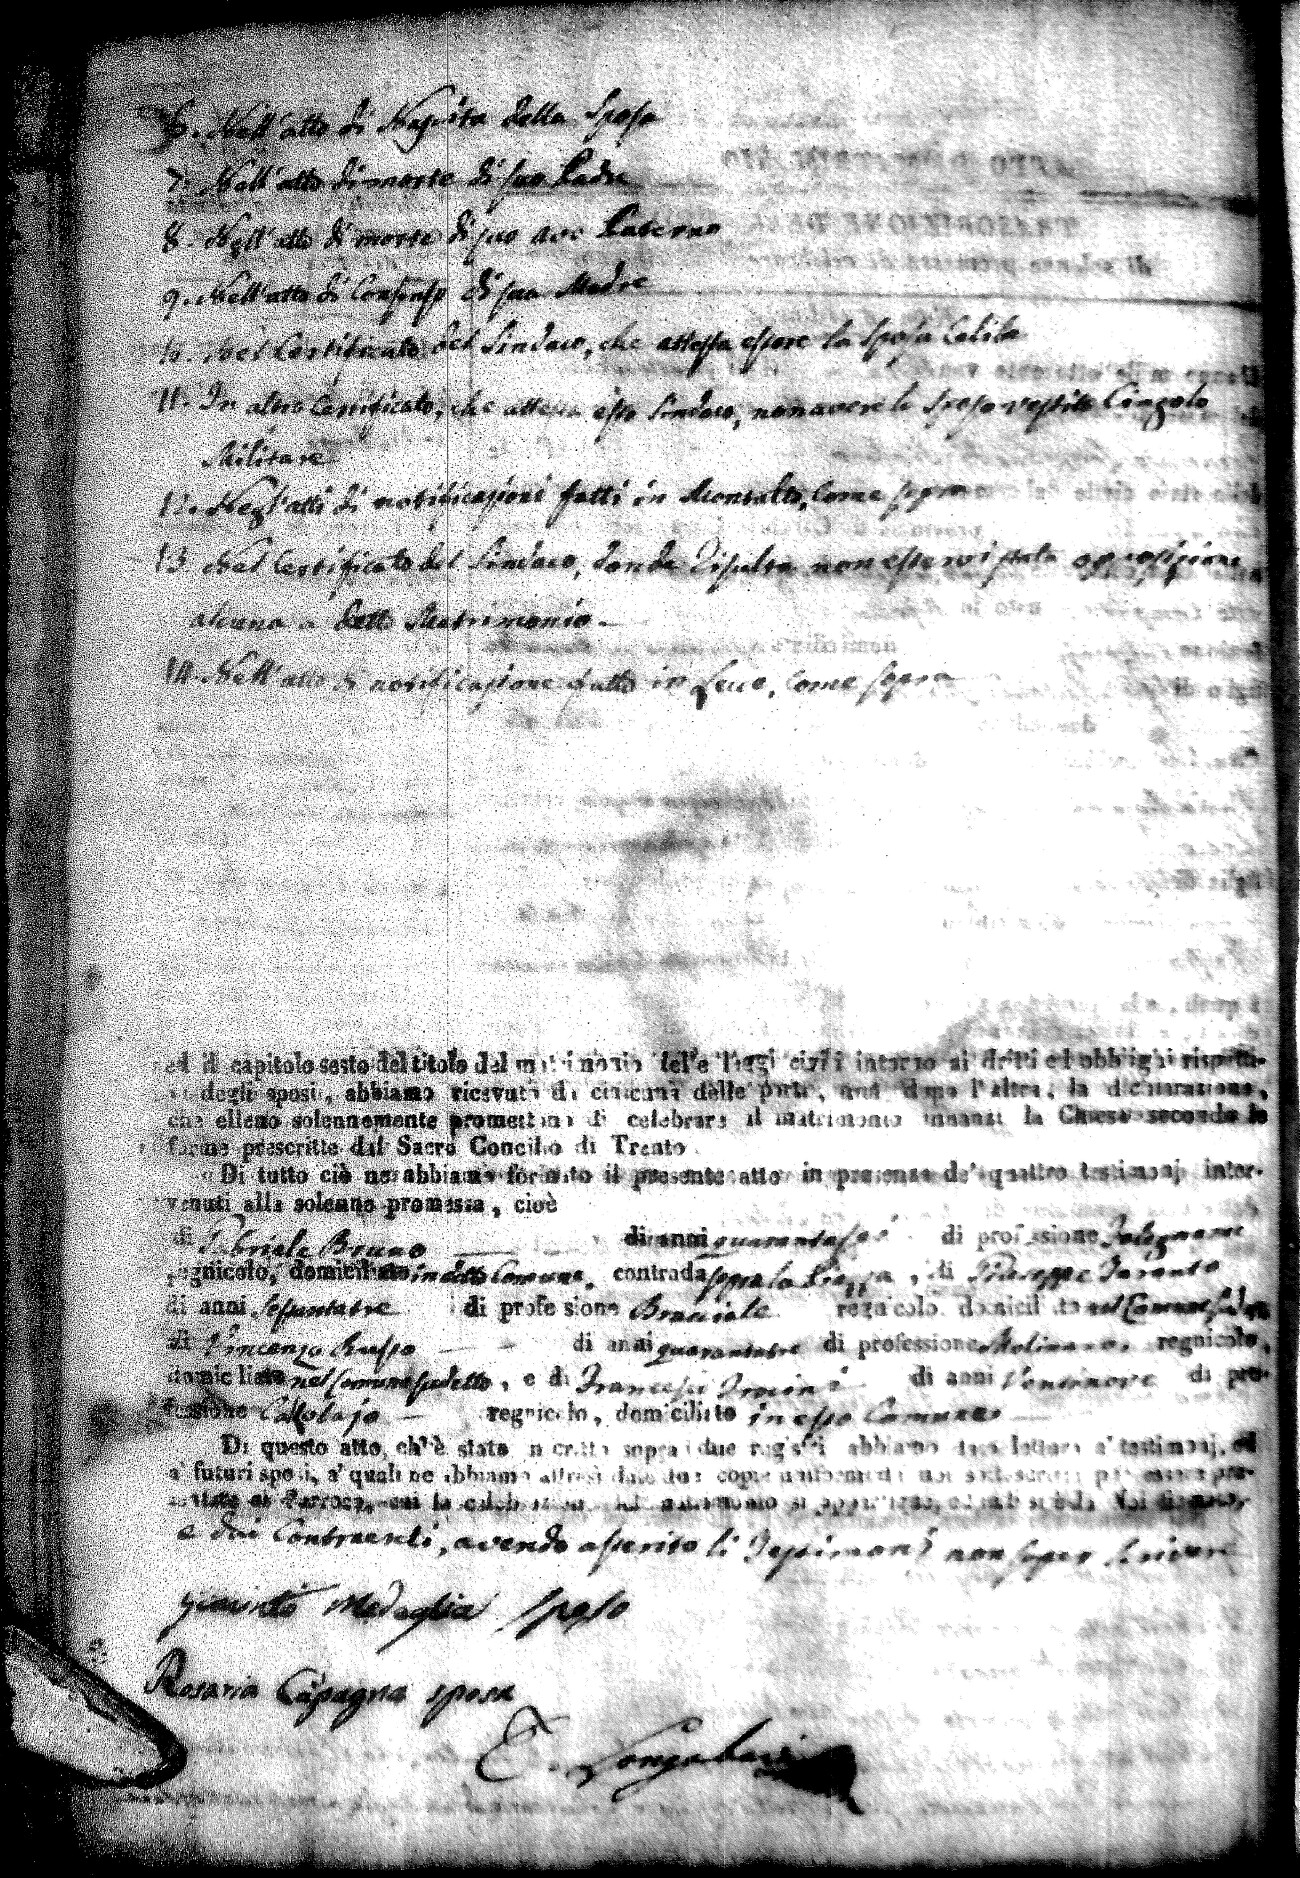 6. Nell'atto di Nascita della Sposa
7. Nell'atto di morte di suo Padre
8. Nell'atto di morte di suo avo Paterno
9. Nell'atto di Consenso di sua Madre
10. Nel Certificato del Sindaco, che attesta essere la sposa Celibe
11. In altro Certificato, che attesta esso Sindaco, non avere lo sposo vestito Cingolo
Militare
12. Negl'atti di notificazioni fatti in Montalto, come sopra
13. Nel Certificato del Sindaco, donde risulta non esservi stata opposizione
alcuna a detto Matrimonio.
14. Nell'atto di notificazione fatto in Lecce, come sopra
ed il capitolo sesto del titolo del matrimonio delle leggi civili intorno ai dritti ed obblighi rispetti-
degli sposi, abbiamo ricevuto da ciascuna delle parti, una dopo l'altra, la dichiarazione,
che elleno solennemente promettono di celebrare il matrimonio innanzi la Chiesa secondo le
forme prescritte dal Sacro Concilio di Trento
Di tutto ciò ne abbiamo formato il presente atto in presenza de' quattro testimonj inter-
venuti alla solenne promessa, cioè
di Gabriele Bruno di anni quarantasei di professione Falegname
regnicolo, domiciliato in detto Comune, contrada sopra la Piazza, di Giuseppe Taranto
di anni sessantatre di professione Bracciale regnicolo, domiciliato nel Comune sudetto
di Vincenzo Russo di anni quarantatre di professione Molinaro, regnicolo,
domiciliato nel Comune sudetto, e di Francesco di anni Ventinove di pro-
fessione Calzolajo regnicolo, domiciliato in esso Comune
Di questo atto, ch'è stato inscritto sopra i due registri abbiamo dato lettura a' testimonj, ed
a' futuri sposi, a' quali ne abbiamo altresì date due copie uniformi da noi sottoscritte per essere pre-
sentate al Parroco, cui la celebrazione del matrimonio si appartiene, e quindi si è da Noi firmato,
e dai Contraenti, avendo asserito li Testimonj non saper scrivere
giacinto Medaglia sposo
Rosaria Capagna sposa